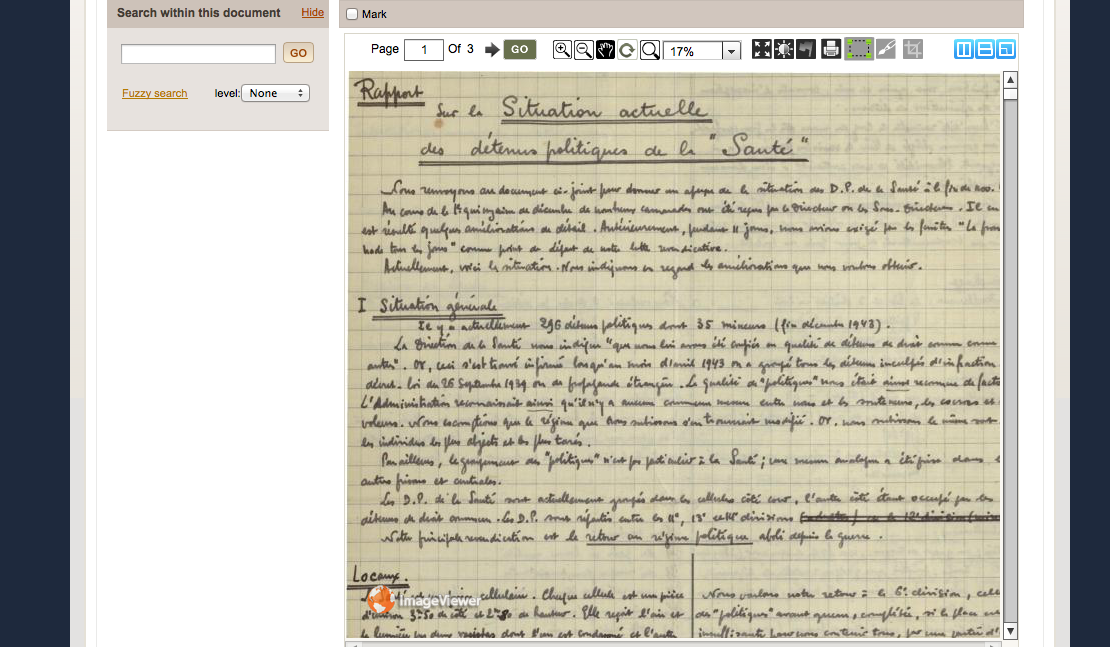 Search within this document
Hide
Mark
GO
Page 1 Of 3 GO
17%
Fuzzy search
level: None
Rapport
Sur la Situation actuelle
des détenus politiques de la "Santé"
Nous renvoyons au document ci-joint pour donner un aperçu de la situation des D.P. de la Santé à la fin de nov.
Au cours de la 1e quinzaine de décembre de nombreux camarades ont été reçus par le Directeur ou les Sous-Directeurs. Il en
est résulté quelques améliorations de détail. Antérieurement, pendant 11 jours, nous avions exigé par les fenêtres "La prome
nade tous les jours" comme point de départ de notre lutte revendicative.
Actuellement, voici la situation. Nous indiquons en regard les améliorations que nous voulons obtenir.
I Situation générale
Il y a actuellement 296 détenus politiques dont 35 mineurs (fin décembre 1943).
La Direction de la Santé nous indique "que nous lui avons été confiés en qualité de détenus de droit commun comme
autres". Or, ceci s'est trouvé infirmé lorsqu'au mois d'avril 1943 on a groupé tous les détenus inculpés d'infraction
décret-loi du 26 Septembre 1939 ou de propagande étrangère. La qualité de "politiques" nous était ainsi reconnue de facto
L'Administration reconnaissait ainsi qu'il n'y a aucune commune mesure entre nous et les souteneurs, les escrocs et
voleurs. Nous escomptions que le régime que nous subissons s'en trouverait modifié. Or, nous subissons le même sort
les individus les plus abjects et les plus tarés.
Par ailleurs, le groupement des "politiques" n'est pas particulier à la Santé; une mesure analogue a été prise dans
autres prisons et centrales.
Les D.P. de la Santé sont actuellement groupés dans les cellules côté cour, l'autre côté étant occupé par les
détenus de droit commun. Les D.P. sont répartis entre les 11e, 13e et 14e divisions
Notre principale revendication est le retour au régime politique aboli depuis la guerre.
Locaux.
cellulaire. Chaque cellule est une pièce
d'environ 3m50 de côté et 2m50 de hauteur. Elle reçoit l'air et
la lumière par deux vasistas dont l'un est condamné et l'autre
Nous voulons notre retour à la 6e division, celle
des "politiques" avant guerre, complétée, si la place est
insuffisante pour nous contenir tous, par une partie d'
ImageViewer